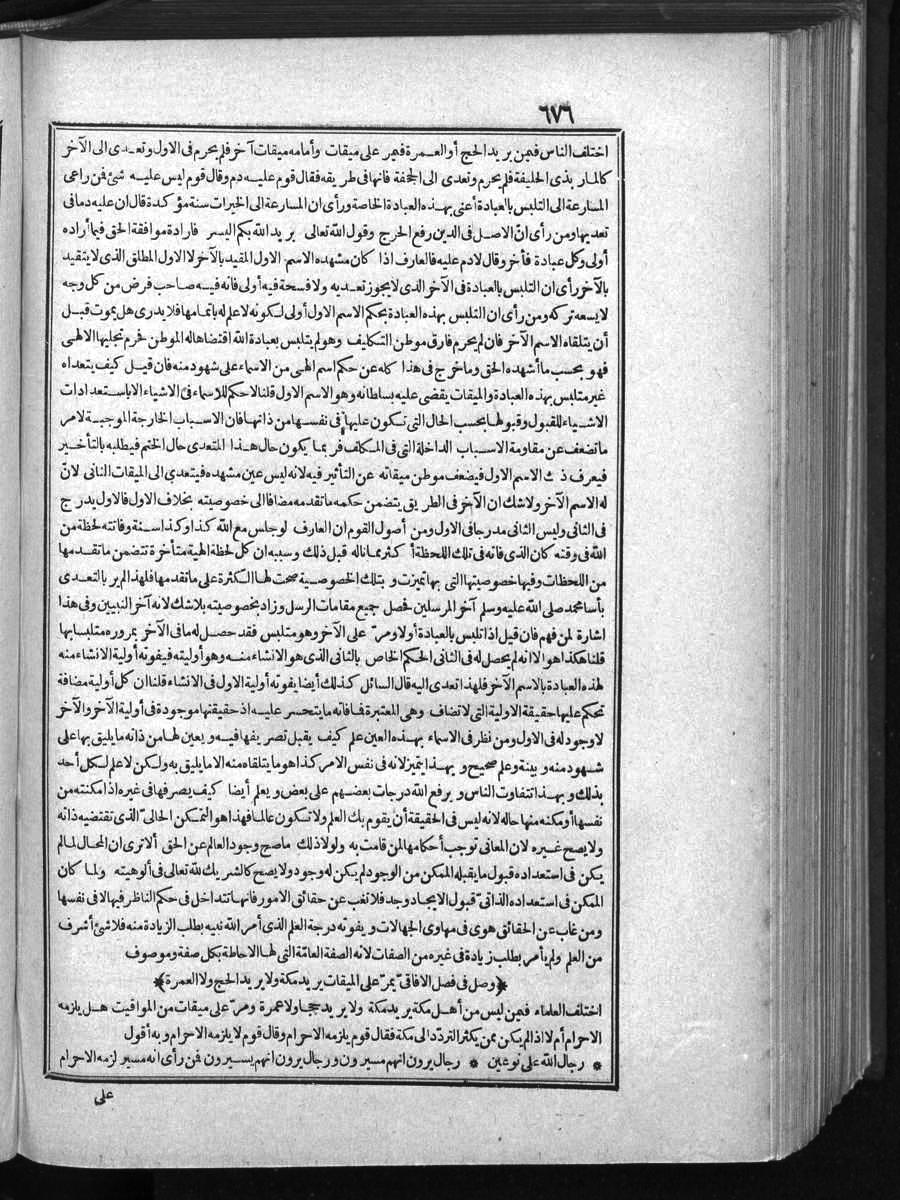 ٦٧٦
اختلف الناس فيمن يريد الحج أو العمرة فيمر على ميقات وأمامه ميقات آخر فلم يحرم فى الاول وتعدى الى الآخر
كالمار بذى الحليفة فلم يحرم وتعدى الى الجحفة فانها فى طريقه فقال قوم عليه دم وقال قوم ليس عليه شئ فمن راعى
المسارعة الى التلبس بالعبادة أعنى بهذه العبادة الخاصة ورأى ان المسارعة الى الخيرات سنة مؤكدة قال ان عليه دما فى
تعديها ومن رأى انّ الاصل فى الدين رفع الحرج وقول الله تعالى يريد الله بكم اليسر فارادة موافقة الحق فيما أراده
أولى وكل عبادة فأخر وقال لا دم عليه فالعارف اذا كان مشهده الاسم الاول المقيد بالآخر لا الاول المطلق الذى لا يتقيد
بالآخر رأى ان التلبس بالعبادة فى الآخر الذى لا يجوز تعديه ولا فسحة فيه أولى فانه فيه صاحب فرض من كل وجه
لا يسعه تركه ومن رأى ان التلبس بهذه العبادة بحكم الاسم الاول أولى لكونه لا علم له باتمامها فلا يدرى هل يموت قبل
أن يتلقاه الاسم الآخر فان لم يحرم فارق موطن التكليف وهو لم يتلبس بعبادة الله اقتضاها له الموطن فحرم تجليها الالهى
فهو بحسب ما أشهده الحق وما خرج فى هذا كله عن حكم اسم الهى من الاسماء على شهود منه فان قيل كيف يتعداه
غير متلبس بهذه العبادة والميقات يقضى عليه بسلطانه وهو الاسم الاول قلنا لا حكم للاسماء فى الاشياء الا باستعدادات
الاشياء للقبول وقبولها بحسب الحال التى تكون عليها فى نفسها من ذاتها فان الاسباب الخارجة الموجبة لامر
ما تضعف عن مقاومة الاسباب الداخلة التى فى المكلف فربما يكون حال هذا المتعدى حال الختم فيطلبه بالتأخير
فيعرف ذ ك الاسم الاول فيضعف موطن ميقاته عن التأثير فيه لانه ليس عين مشهده فيتعدى الى الميقات الثانى لانّ
له الاسم الآخر ولا شك ان الآخر فى الطريق يتضمن حكمه ما تقدمه مضافا الى خصوصيته بخلاف الاول فالاول يدرج
فى الثانى وليس الثانى مدرجا فى الاول ومن أصول القوم ان العارف لو جلس مع الله كذا وكذا سنة وفاتته لحظة من
الله فى وقته كان الذى فاته فى تلك اللحظة أكثر مما ناله قبل ذلك وسببه ان كل لحظة الهية متأخرة تتضمن ما تقدمها
من اللحظات وفيها خصوصيتها التى بها تميزت وبتلك الخصوصية صحت لها الكثرة على ما تقدمها فلهذا لم ير بالتعدى
بأسا محمد صلى الله عليه وسلم آخر المرسلين فحصل جميع مقامات الرسل وزاد بخصوصيته بلا شك لانه آخر النبيين وفى هذا
اشارة لمن فهم فان قيل اذا تلبس بالعبادة أولا ومرّ على الآخر وهو متلبس فقد حصل له ما فى الآخر بمروره متلبسا بها
قلنا هكذا هو الا انه لم يحصل له فى الثانى الحكم الخاص بالثانى الذى هو الانشاء منه وهو أوليته فيفوته أولية الانشاء منه
لهذه العبادة بالاسم الآخر فلهذا تعدى اليه قال السائل كذلك أيضا يفوته أولية الاول فى الانشاء قلنا ان كل أولية مضافة
تحكم عليها حقيقة الاولية التى لا تضاف وهى المعتبرة فما فاته ما يتحسر عليه اذ حقيقتها موجودة فى أولية الآخر والآخر
لا وجود له فى الاول ومن نظر فى الاسماء بهذه العين علم كيف يقبل تصريفها فيه ويعين لها من ذاته ما يليق بها على
شهود منه وبينة وعلم صحيح وبهذا يتميز لانه فى نفس الامر كذا هو ما يتلقاه منه الا ما يليق به ولكن لا علم لكل أحد
بذلك وبهذا تتفاوت الناس ويرفع الله درجات بعضهم على بعض ويعلم أيضا كيف يصرفها فى غيره اذا مكنته من
نفسها أو مكنه منها حاله لانه ليس فى الحقيقة أن يقوم بك العلم ولا تكون عالما فهذا هو التمكن الحالىّ الذى تقتضيه ذاته
ولا يصح غيره لان المعانى توجب أحكامها لمن قامت به ولولا ذلك ما صح وجود العالم عن الحق ألا ترى ان المحال لما لم
يكن فى استعداده قبول ما يقبله الممكن من الوجود لم يكن له وجود ولا يصح كالشريك لله تعالى فى ألوهيته ولما كان
الممكن فى استعداده الذاتىّ قبول الايجاد وجد فلا تغب عن حقائق الامور فانها تتداخل فى حكم الناظر فيها لا فى نفسها
ومن غاب عن الحقائق هوى فى مهاوى الجهالات ويفوته درجة العلم الذى أمر الله نبيه بطلب الزيادة منه فلا شئ أشرف
من العلم ولم يأمر بطلب زيادة فى غيره من الصفات لانه الصفة العامّة التى لها الاحاطة بكل صفة وموصوف
﴿وصل فى فصل الافاقىّ يمرّ على الميقات يريد مكة ولا يريد الحج ولا العمرة﴾
اختلف العلماء فيمن ليس من أهل مكة يريد مكة ولا يريد حجا ولا عمرة ومرّ على ميقات من المواقيت هل يلزمه
الاحرام أم لا اذا لم يكن ممن يكثر التردّد الى مكة فقال قوم يلزمه الاحرام وقال قوم لا يلزمه الاحرام وبه أقول
* رجال الله على نوعين * رجال يرون انهم مسيرون ورجال يرون انهم يسيرون فمن رأى انه مسير لزمه الاحرام
على